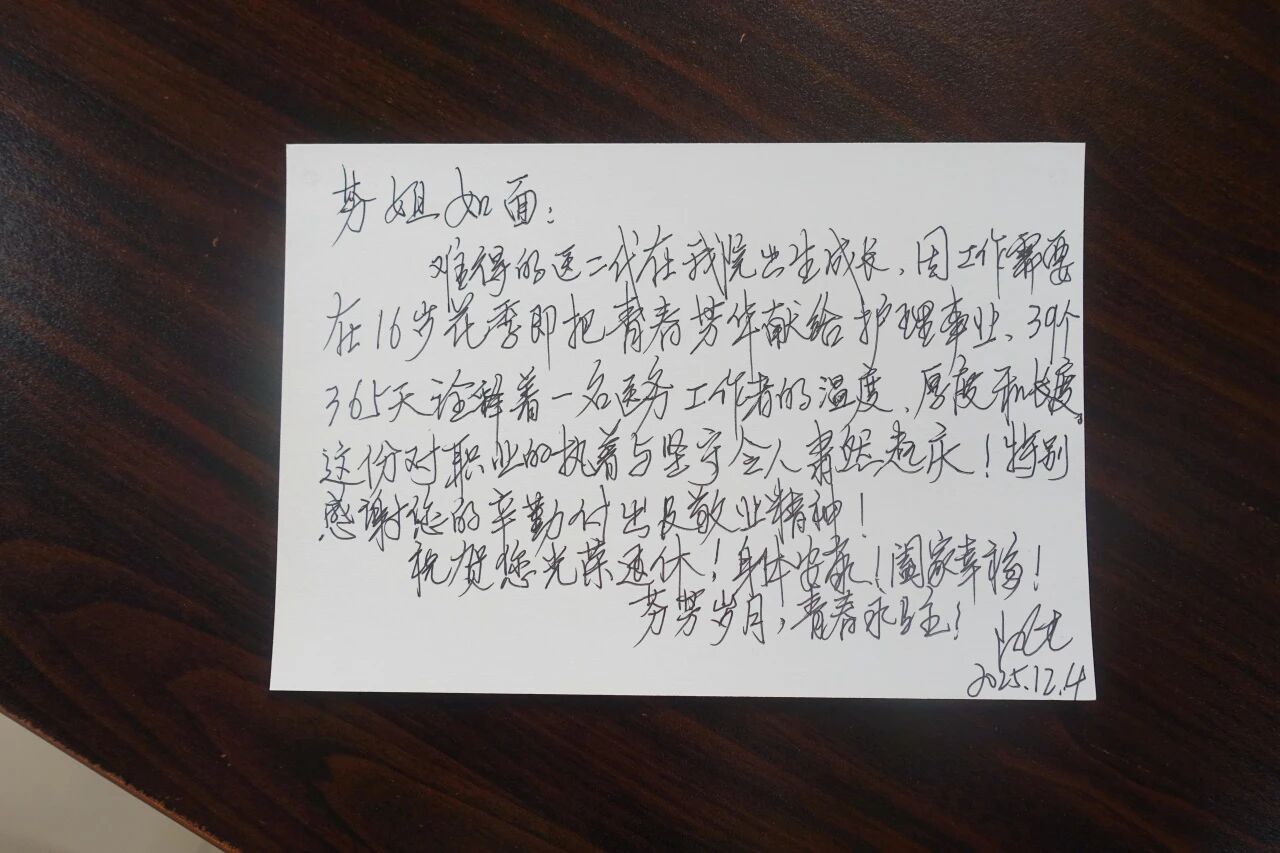 芳姐如面：
难得的医二代在我院出生成长，因工作需要
在16岁花季即把青春芳华献给护理事业、39个
365天诠释着一名医务工作者的温度、厚度和长度。
这份对职业的执着与坚守令人肃然起庆！特别
感谢您的辛勤付出及敬业精神！
祝贺您光荣退休！身体安康！阖家幸福！
芬芳岁月，青春永驻！
2025.12.4